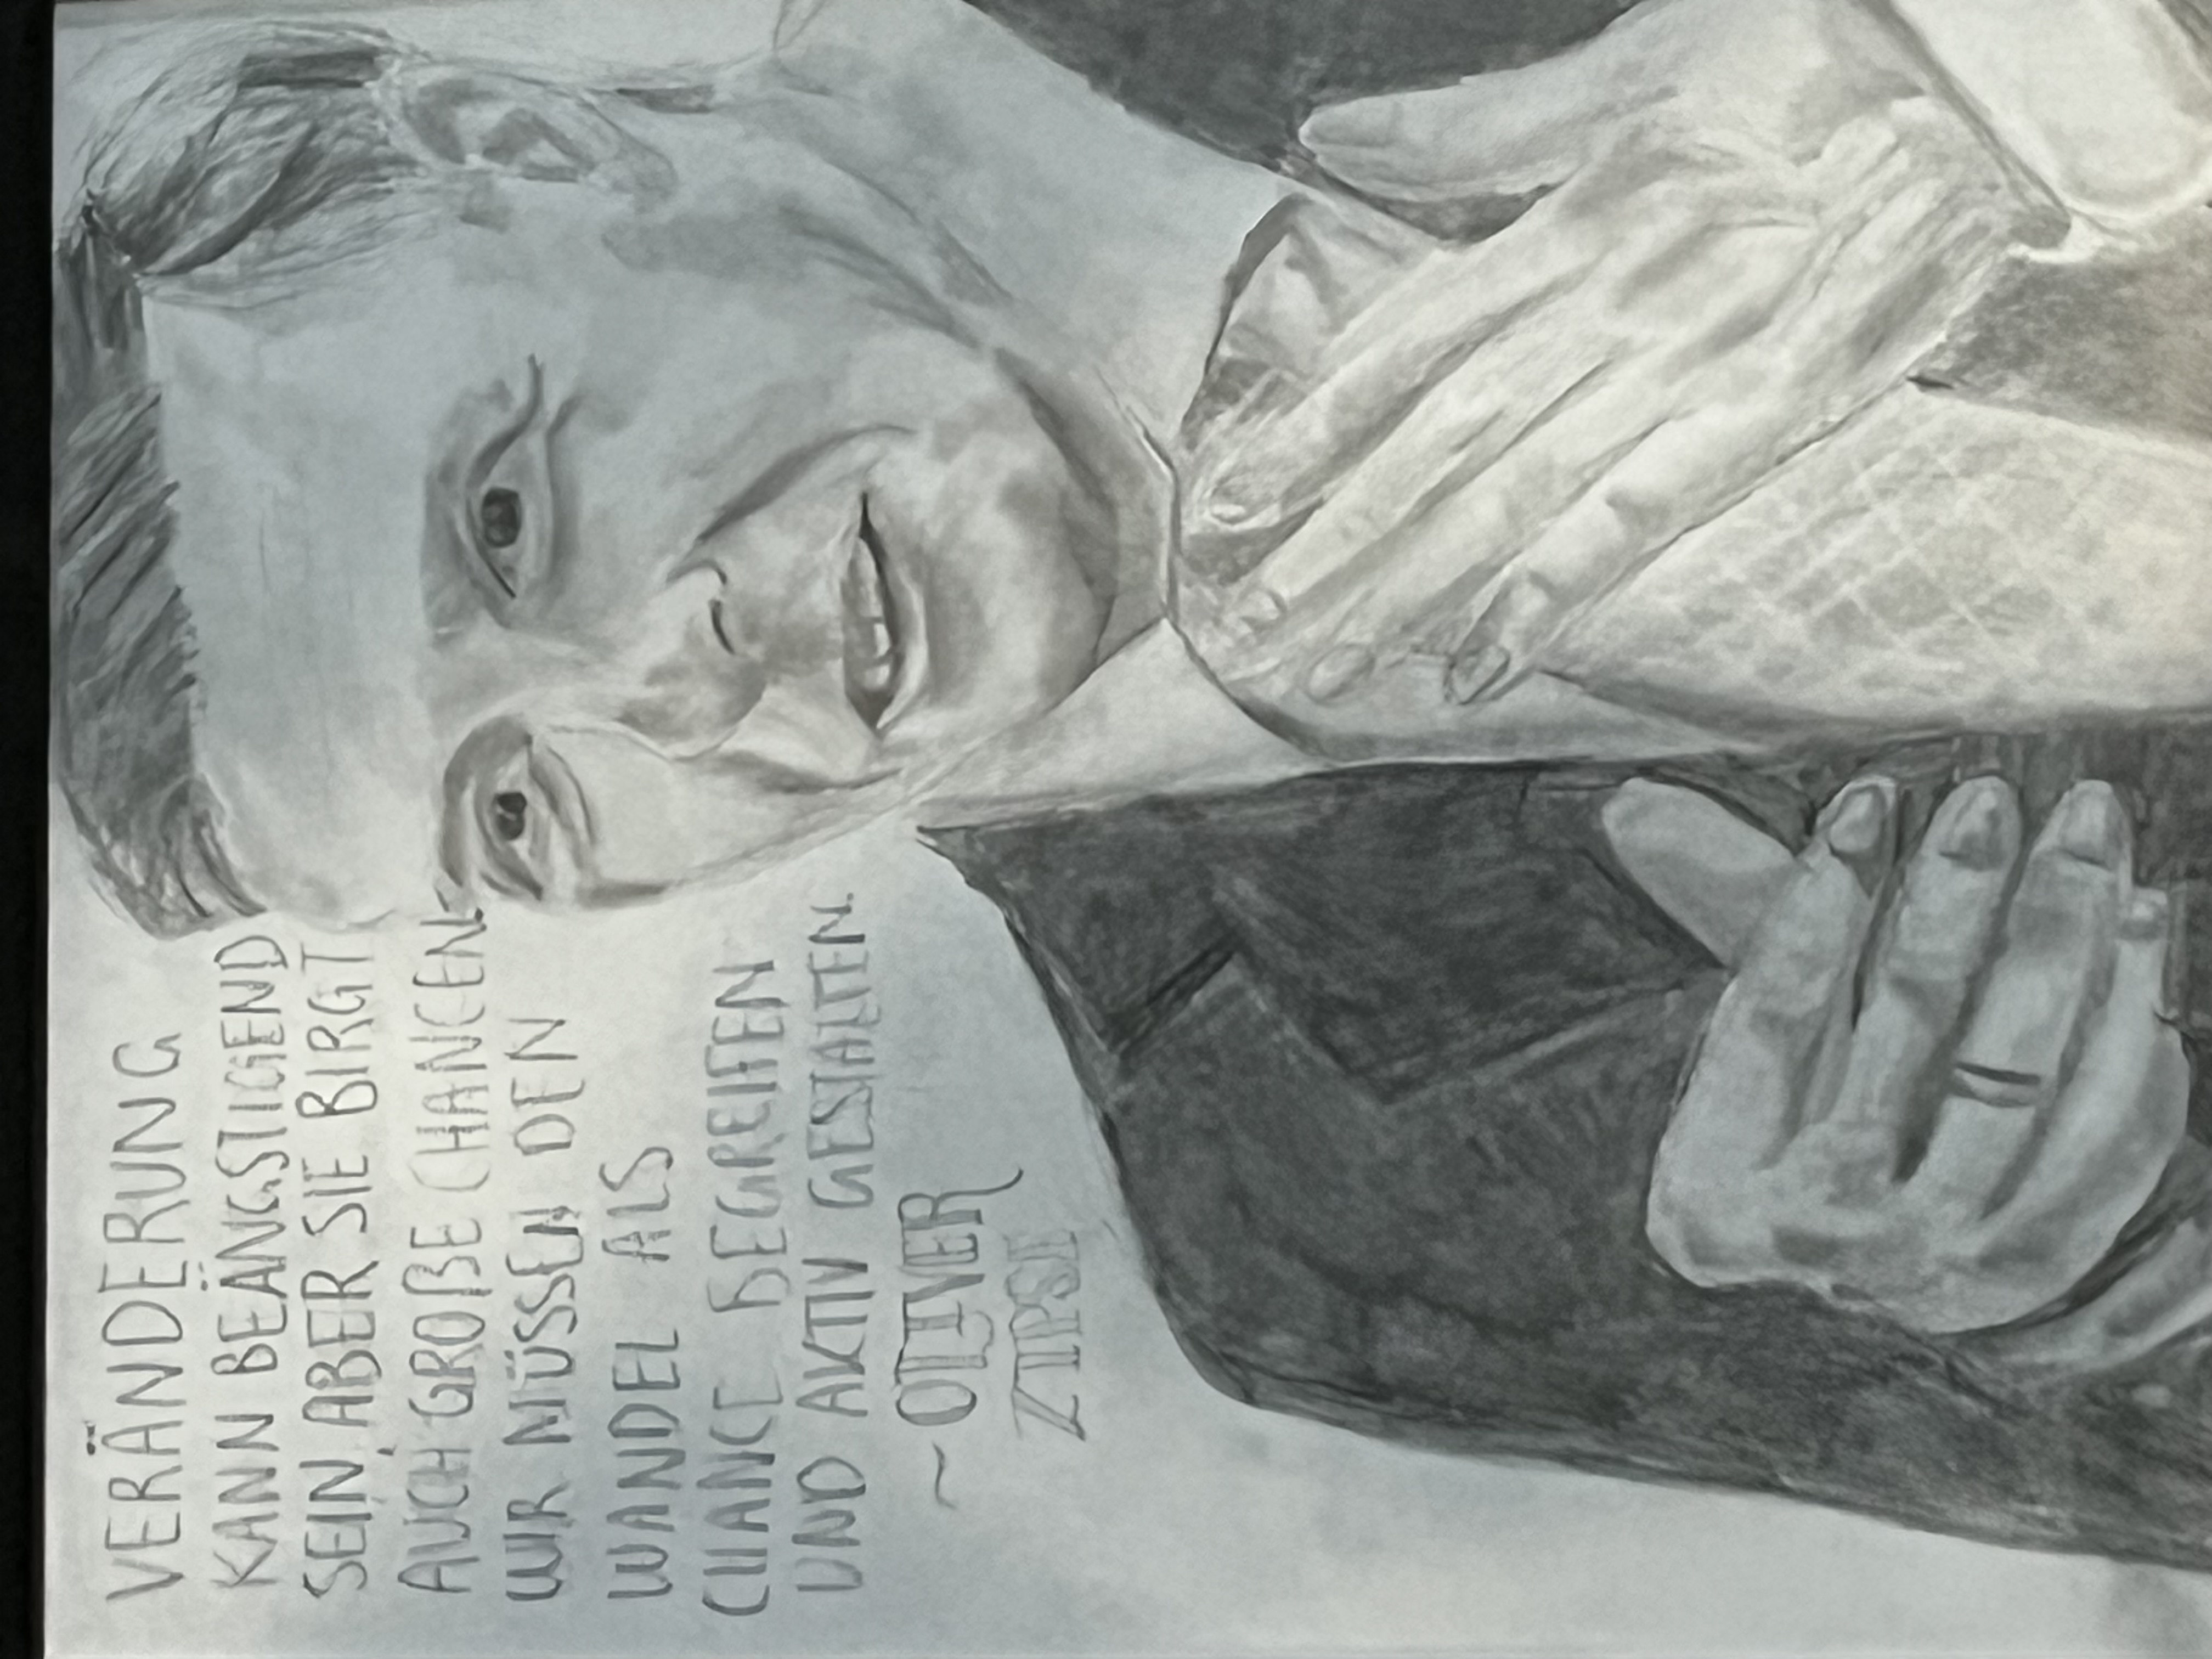 VERÄNDERUNG
KANN BEÄNGSTIGEND
SEIN, ABER SIE BIRGT
AUCH GROẞE CHANCEN.
WIR MÜSSEN DEN
WANDEL ALS
CHANCE BEGREIFEN
UND AKTIV GESTALTEN.
~ OLIVER
ZIPSE